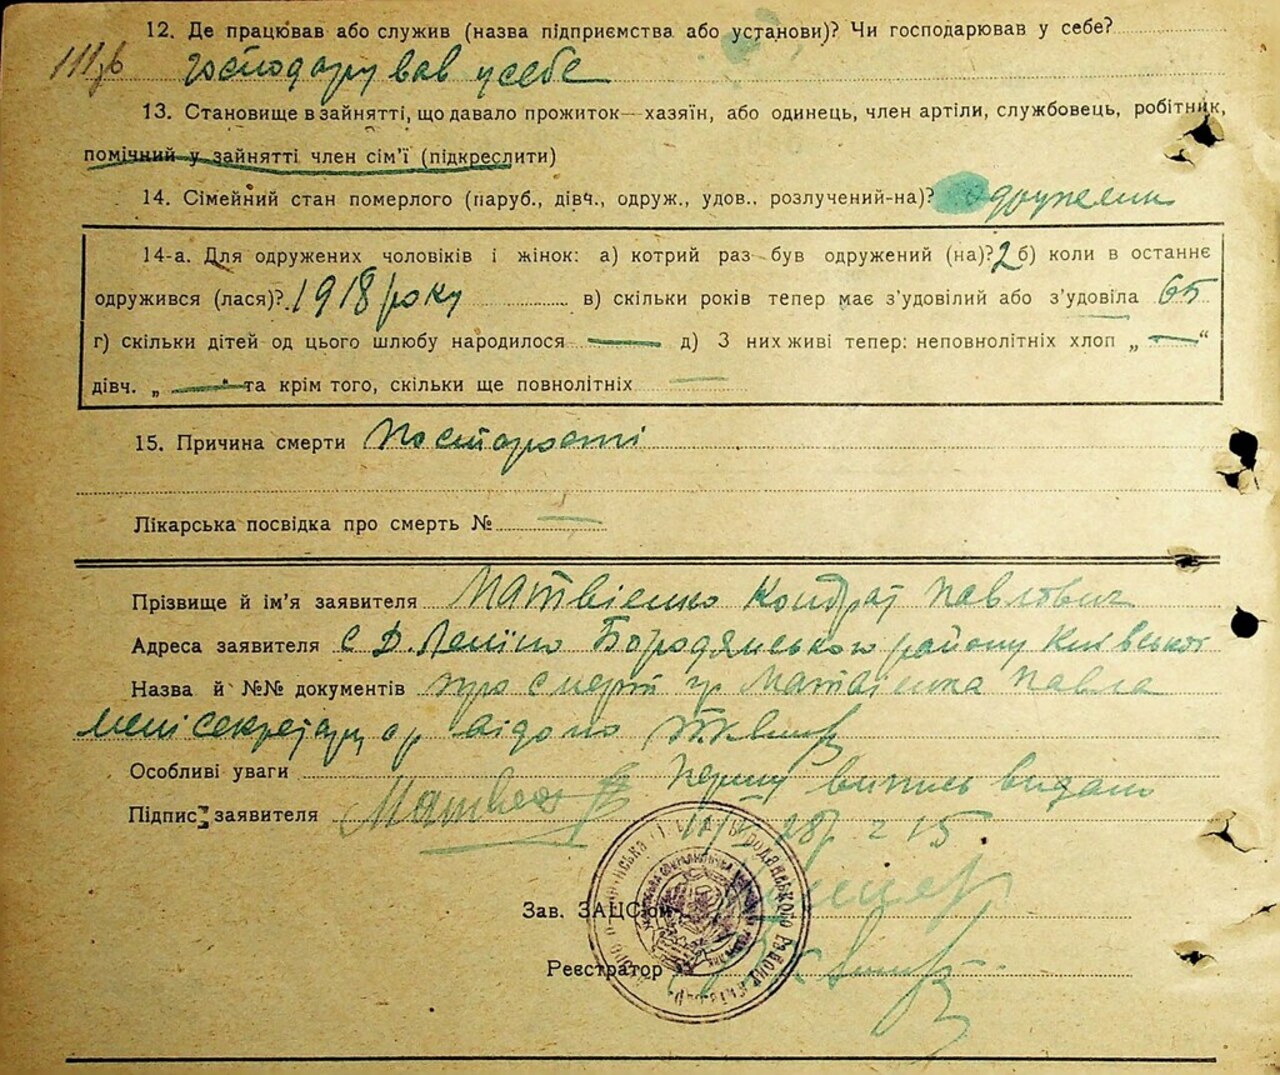 12. Де працював або служив (назва підприємства або установи)? Чи господарював у себе?
111зв Господарував у себе
13. Становище в зайнятті, що давало прожиток—хазяїн, або одинець, член артіли, службовець, робітник,
помічний у зайнятті член сім'ї (підкреслити)
14. Сімейний стан померлого (паруб., дівч., одруж., удов., розлучений-на)? Одружений
14-а. Для одружених чоловіків і жінок: а) котрий раз був одружений (на)? 2 б) коли в останнє
одружився (лася)? 1918 року в) скільки років тепер має з'удовілий або з'удовіла 65
г) скільки дітей од цього шлюбу народилося — д) З них живі тепер: неповнолітніх хлоп „ — “
дівч. „ — та крім того, скільки ще повнолітніх —
15. Причина смерти По старості
Лікарська посвідка про смерть № —
Прізвище й ім'я заявителя Матвієнко Кондрат Павлович
Адреса заявителя с Д. Леніно Бородянського району Київської
Назва й №№ документів про смерть гр Матвієнка Павла
мені секретару с/р відомо
Особливі уваги Першу випись видано
Підпис заявителя 28р. 15
Зав. ЗАЦС'ом
Реєстратор